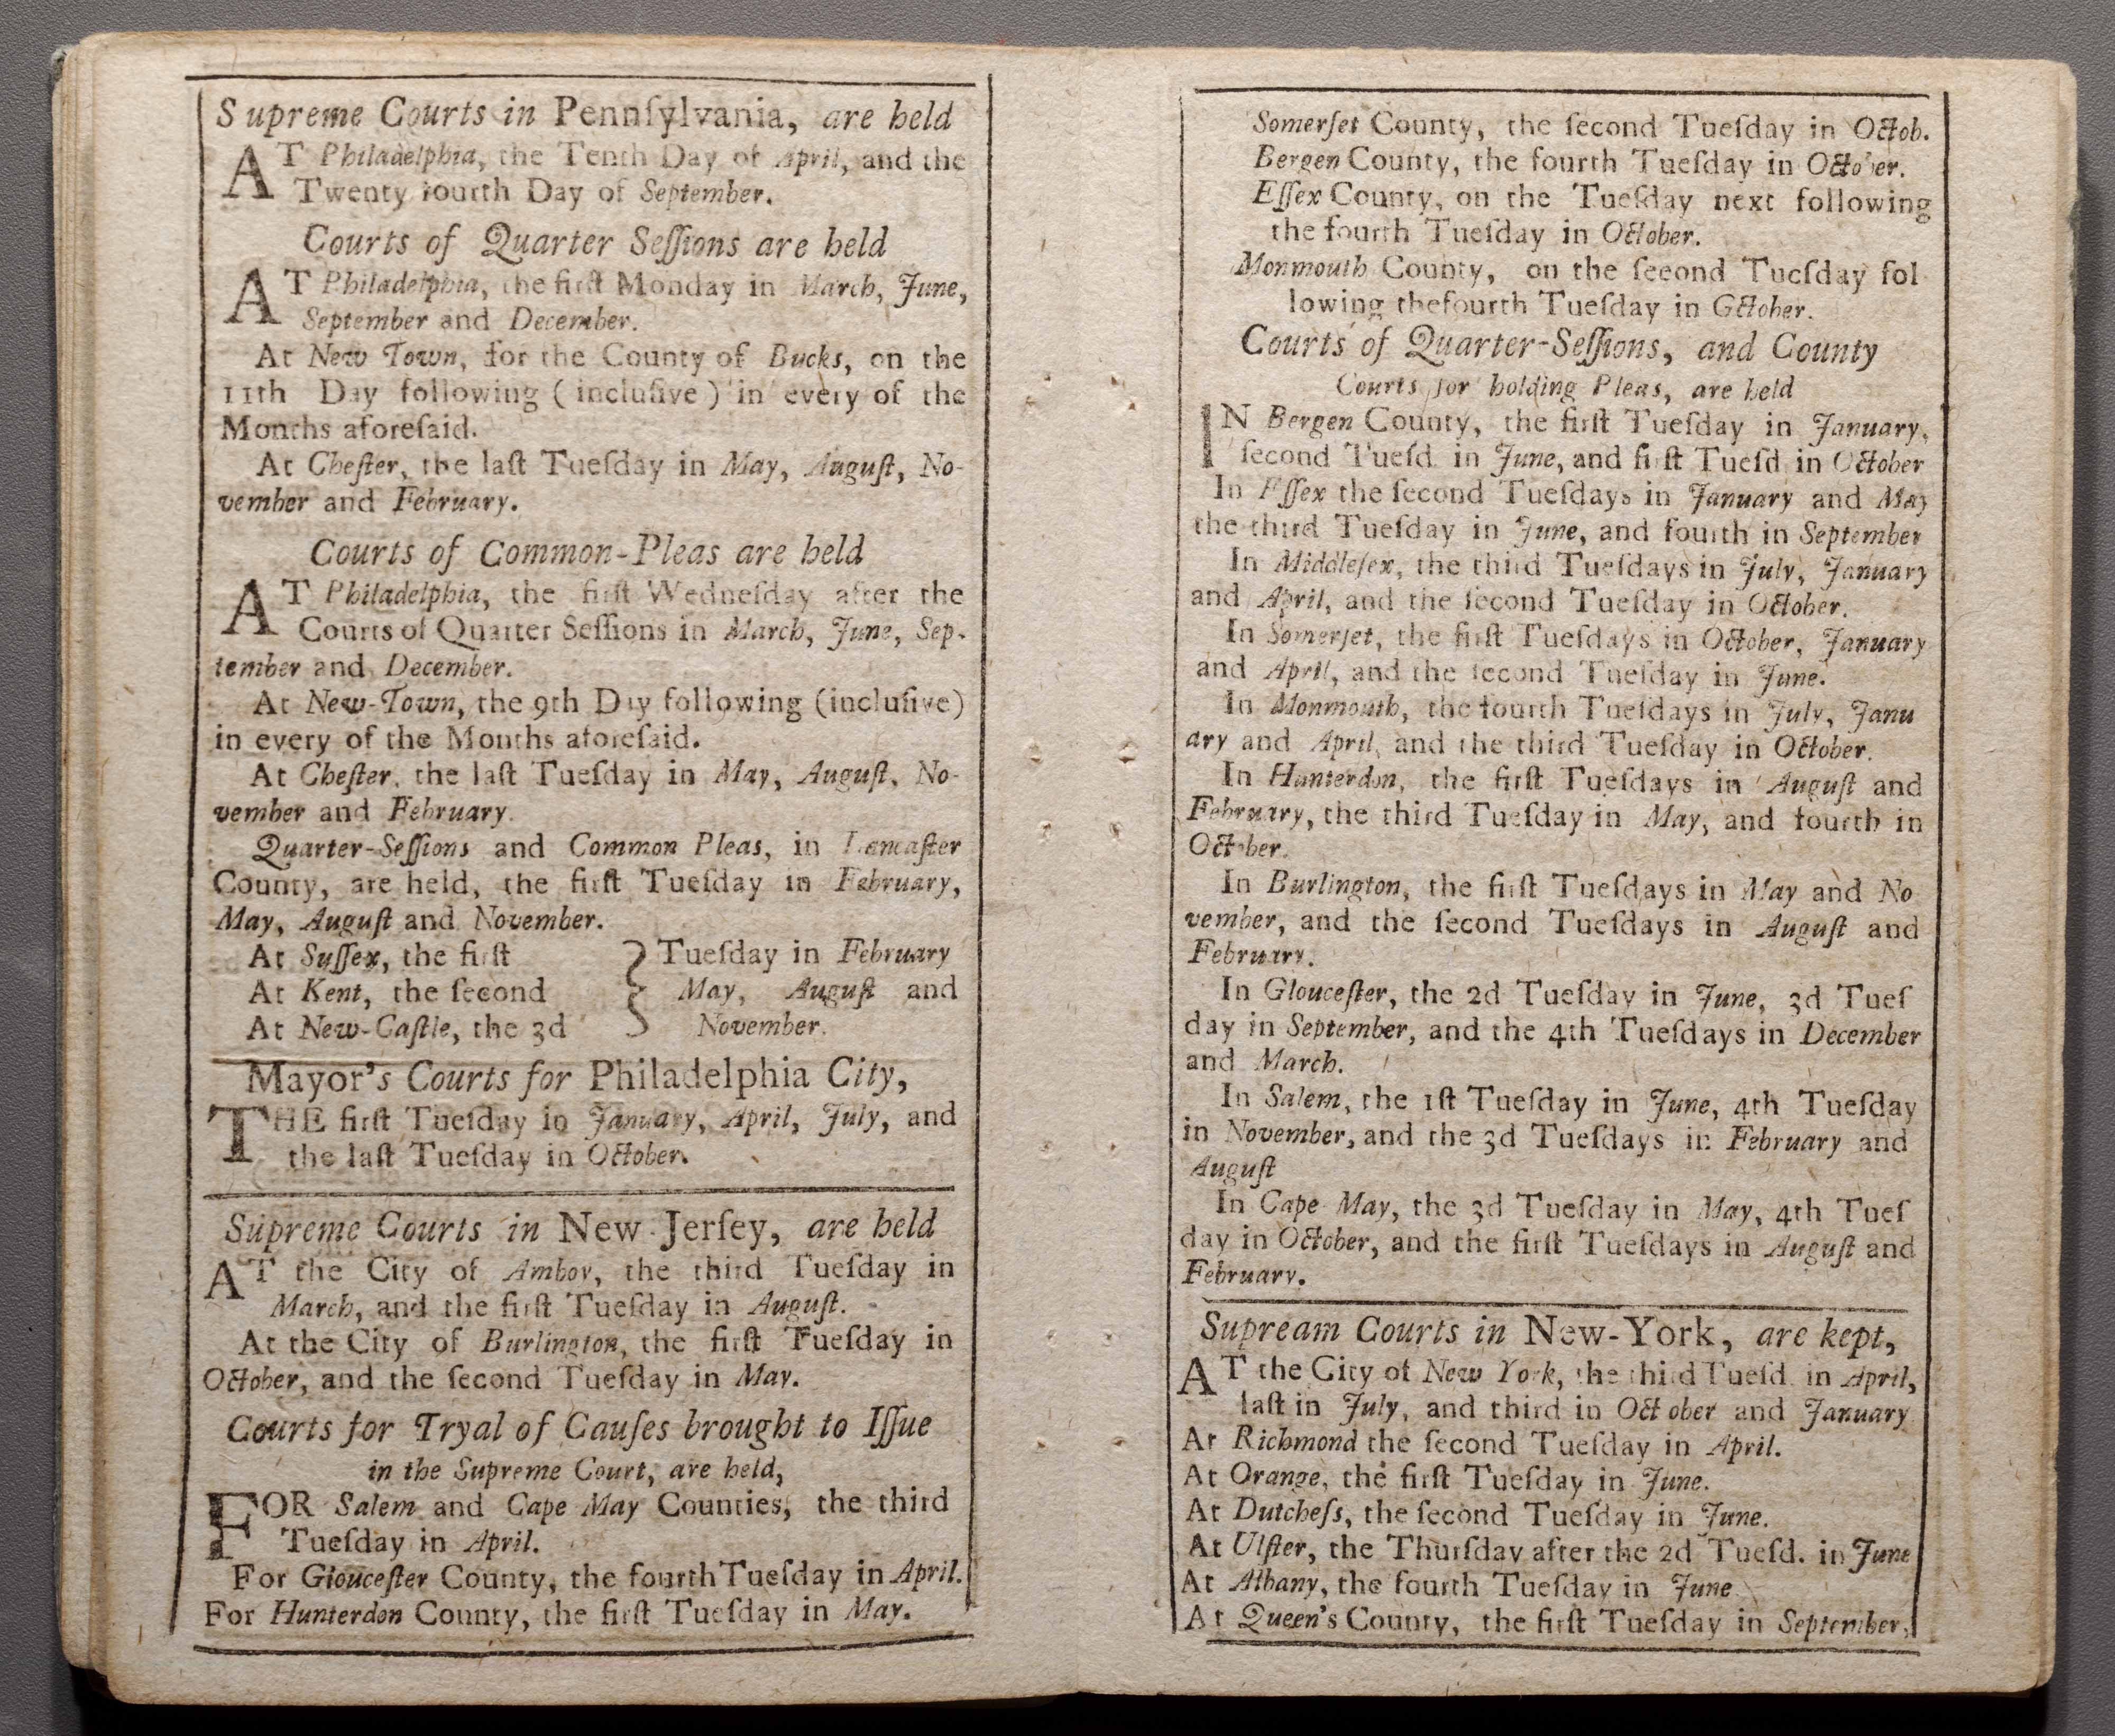 Supreme Courts in Pennſylvania, are held
AT Philadelphia, the Tenth Day of April, and the
Twenty fourth Day of September.
Courts of Quarter Seſſions are held
AT Philadelphia, the firſt Monday in March, June,
September and December.
At New Town, for the County of Bucks, on the
11th Day following (incluſive) in every of the
Months aforeſaid.
At Cheſter, the laſt Tueſday in May, Auguſt, No-
vember and February.
Courts of Common-Pleas are held
AT Philadelphia, the firſt Wedneſday after the
Courts of Quarter Seſſions in March, June, Sep-
tember and December.
At New-Town, the 9th Day following (incluſive)
in every of the Months aforeſaid.
At Cheſter, the laſt Tueſday in May, Auguſt, No-
vember and February.
Quarter-Seſſions and Common Pleas, in Lancaſter
County, are held, the firſt Tueſday in February,
May, Auguſt and November.
At Suſſex, the firſt } Tueſday in February
At Kent, the ſecond } May, Auguſt and
At New-Caſtle, the 3d } November.
Mayor's Courts for Philadelphia City,
THE firſt Tueſday in January, April, July, and
the laſt Tueſday in October.
Supreme Courts in New Jerſey, are held
AT the City of Amboy, the third Tueſday in
March, and the firſt Tueſday in Auguſt.
At the City of Burlington, the firſt Tueſday in
October, and the ſecond Tueſday in May.
Courts for Tryal of Cauſes brought to Iſſue
in the Supreme Court, are held,
FOR Salem and Cape May Counties, the third
Tueſday in April.
For Glouceſter County, the fourth Tueſday in April.
For Hunterdon County, the firſt Tueſday in May.
Somerſet County, the ſecond Tueſday in Octob.
Bergen County, the fourth Tueſday in October.
Eſſex County, on the Tueſday next following
the fourth Tueſday in October.
Monmouth County, on the ſecond Tueſday fol
lowing thefourth Tueſday in Gctober.
Courts of Quarter-Seſſions, and County
Courts for holding Pleas, are held
IN Bergen County, the firſt Tueſday in January,
ſecond Tueſd. in June, and firſt Tueſd in October
In Eſſex the ſecond Tueſdays in January and May
the third Tueſday in June, and fourth in September
In Middleſex, the third Tueſdays in July, January
and April, and the ſecond Tueſday in October.
In Somerſet, the firſt Tueſdays in October, January
and April, and the ſecond Tueſday in June.
In Monmouth, the fourth Tueſdays in July, Janu
ary and April, and the third Tueſday in October.
In Hunterdon, the firſt Tueſdays in Auguſt and
February, the third Tueſday in May, and fourth in
October.
In Burlington, the firſt Tueſdays in May and No
vember, and the ſecond Tueſdays in Auguſt and
February.
In Glouceſter, the 2d Tueſday in June, 3d Tueſ
day in September, and the 4th Tueſdays in December
and March.
In Salem, the 1ſt Tueſday in June, 4th Tueſday
in November, and the 3d Tueſdays in February and
Auguſt
In Cape May, the 3d Tueſday in May, 4th Tueſ
day in October, and the firſt Tueſdays in Auguſt and
February.
Supream Courts in New-York, are kept,
AT the City of New York, the third Tueſd. in April,
laſt in July, and third in October and January
At Richmond the ſecond Tueſday in April.
At Orange, the firſt Tueſday in June.
At Dutcheſs, the ſecond Tueſday in June.
At Ulſter, the Thurſday after the 2d Tueſd. in June
At Albany, the fourth Tueſday in June
At Queen's County, the firſt Tueſday in September,